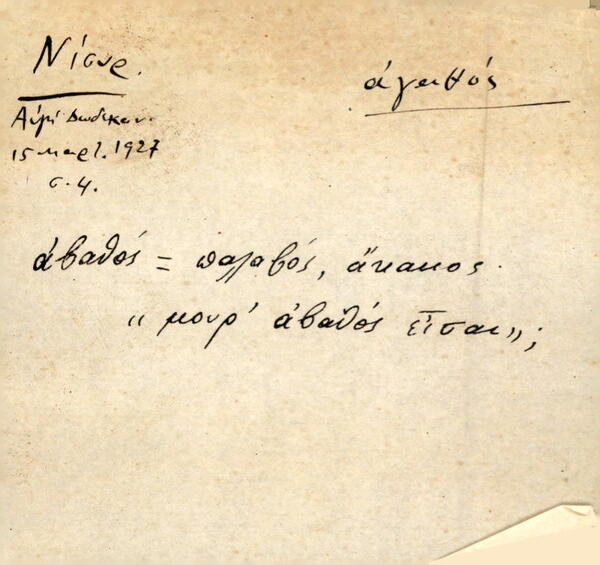 Νίσυρ.
ἀγαθός
Αὐγὴ Δωδεκαν.
15 Μαρτ. 1927
σ. 4.
ἀβαθός = παλαβός, ἄκακος.
« μουρ' ἀβαθός εἶσαι » ;